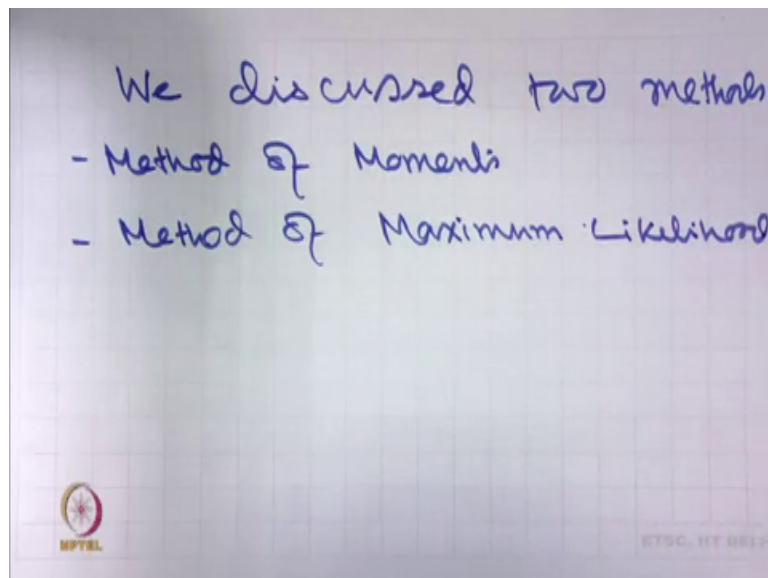 We discussed two methods
- Method of Moments
- Method of Maximum Likelihood
NPTEL
ETSC, IIT DELHI